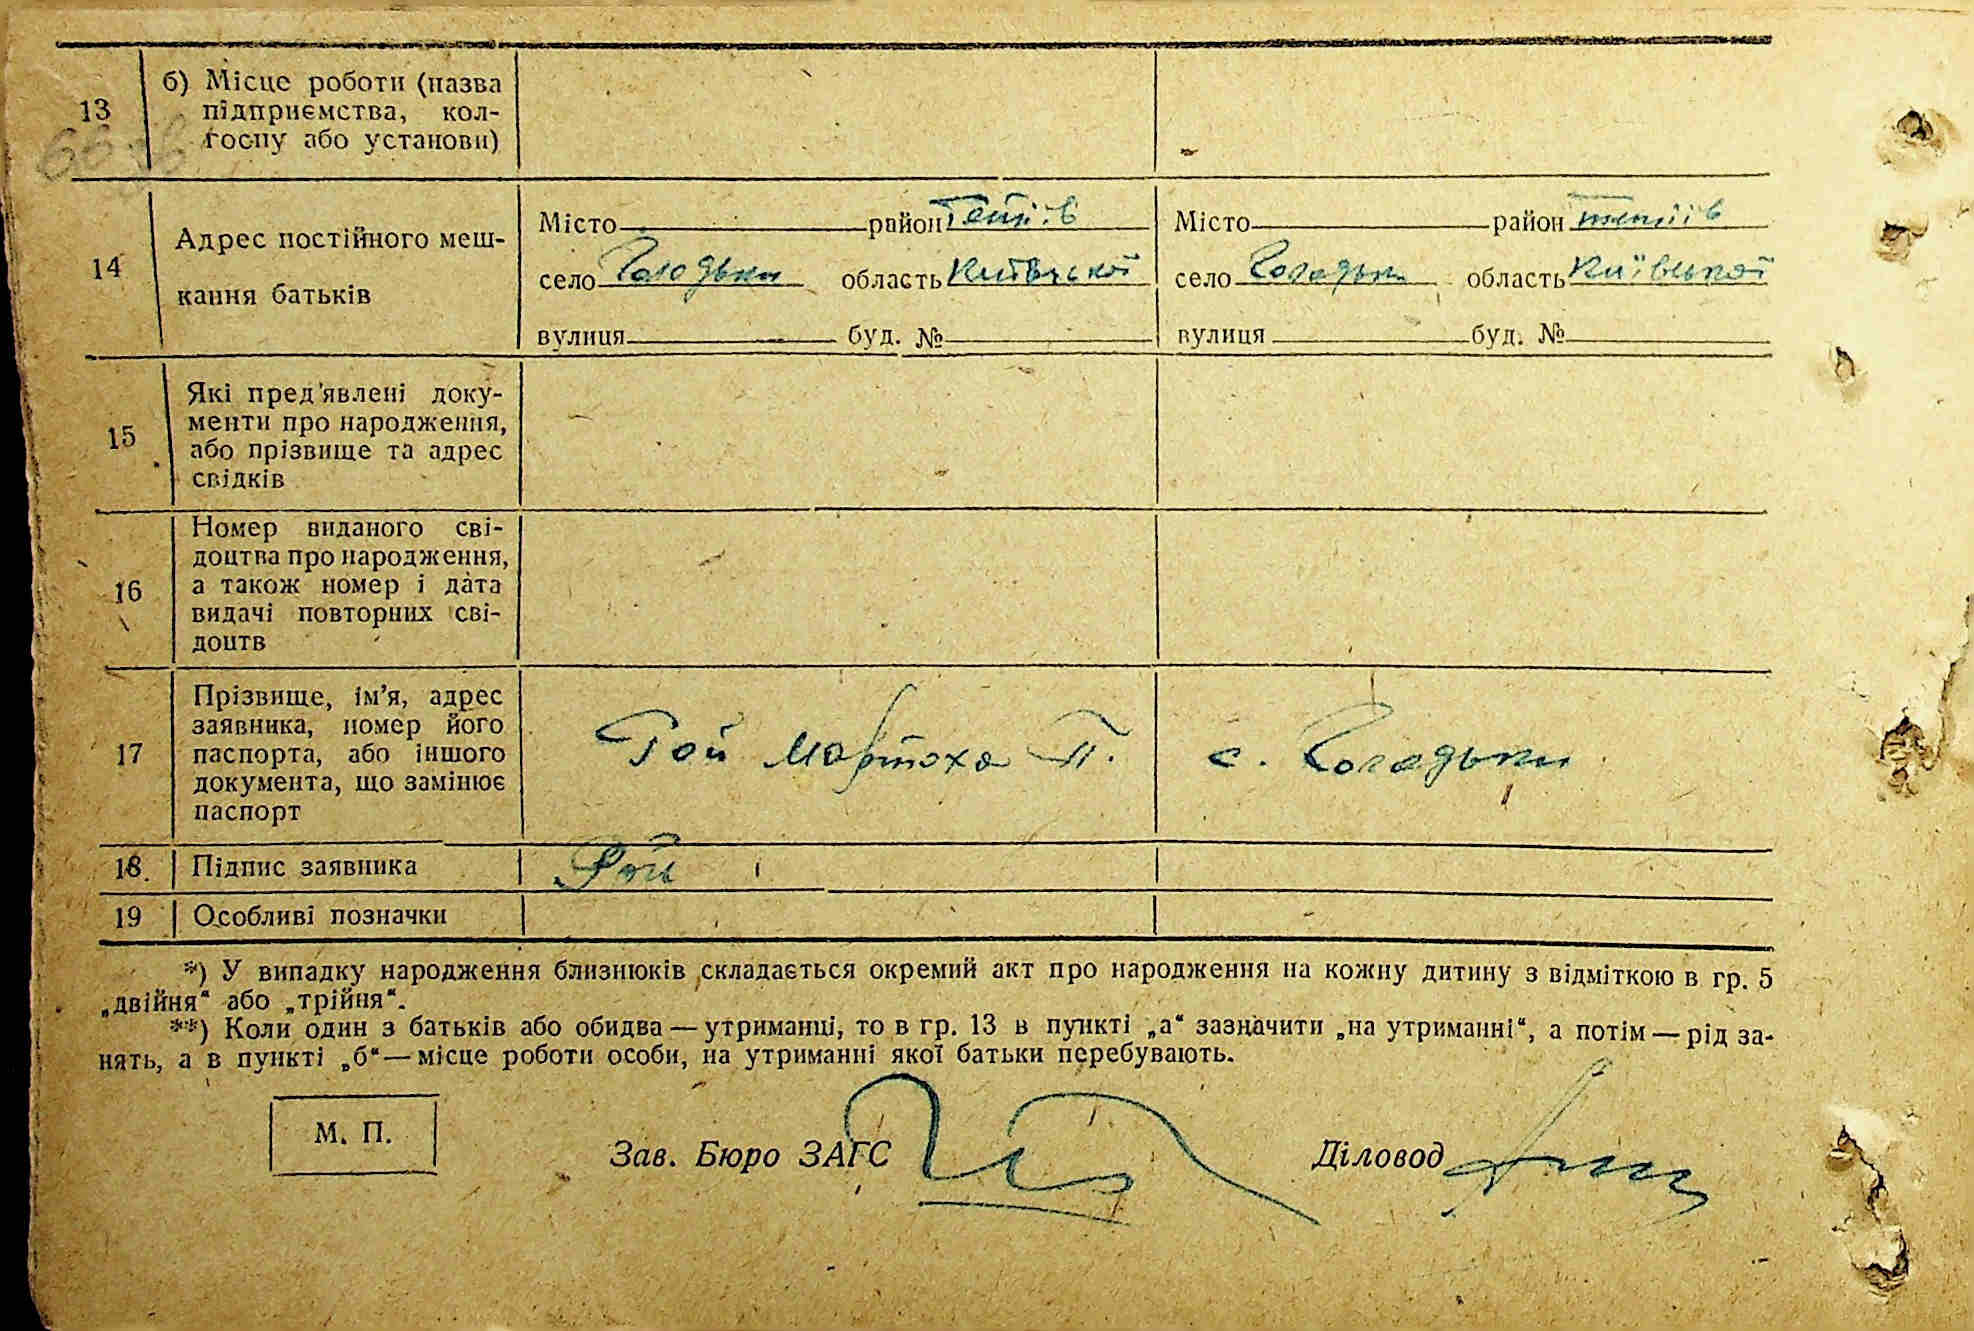 13
б) Місце роботи (назва
підприємства, кол-
госпу або установи)
14
Адрес постійного меш-
кання батьків
Місто район Тетіїв
село Голодьки область Київської
вулиця буд. №
Місто район тетіїв
село Голодьки область Київської
вулиця буд. №
15
Які пред'явлені доку-
менти про народження,
або прізвище та адрес
свідків
16
Номер виданого сві-
доцтва про народження,
а також номер і дата
видачі повторних сві-
доцтв
17
Прізвище, ім'я, адрес
заявника, номер його
паспорта, або іншого
документа, що замінює
паспорт
Гой Мартоха П.
с. Голодьки
18. Підпис заявника Гой
19 Особливі позначки
*) У випадку народження близнюків складається окремий акт про народження на кожну дитину з відміткою в гр. 5
„двійня“ або „трійня“.
**) Коли один з батьків або обидва — утриманці, то в гр. 13 в пункті „а“ зазначити „на утриманні“, а потім — рід за-
нять, а в пункті „б“ — місце роботи особи, на утриманні якої батьки перебувають.
М. П.
Зав. Бюро ЗАГС
Діловод